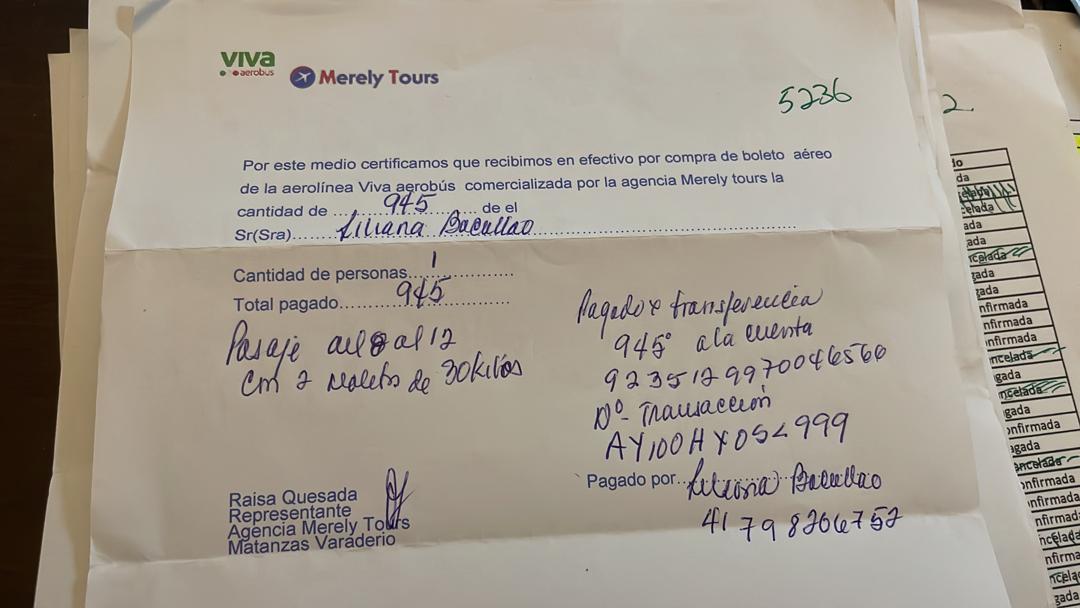 viva
aerobus
Merely Tours
5236
Por este medio certificamos que recibimos en efectivo por compra de boleto aéreo
de la aerolínea Viva aerobús comercializada por la agencia Merely tours la
cantidad de ....945........ de el
Sr(Sra)...... Liliana Bacallao......
Cantidad de personas....1..............
Total pagado......945..............
Pasaje del 8 al 12
con 2 maletas de 30 kilos
Pagado x transferencia
945° a la cuenta
9235129970046560
N°- Transacción
AY100HX05<999
Pagado por... Liliana Bacallao
41798266752
Raisa Quesada
Representante
Agencia Merely Tours
Matanzas Varaderio
2
do
da
celada
celada
ada
ada
ncelada
gada
gada
nfirmada
firmada
onfirmada
ncelada
gada
ncelada
gada
onfirmada
agada
ancelada
onfirmada
nfirmada
nfirmad
ncelad
nfirma
ncela
gada